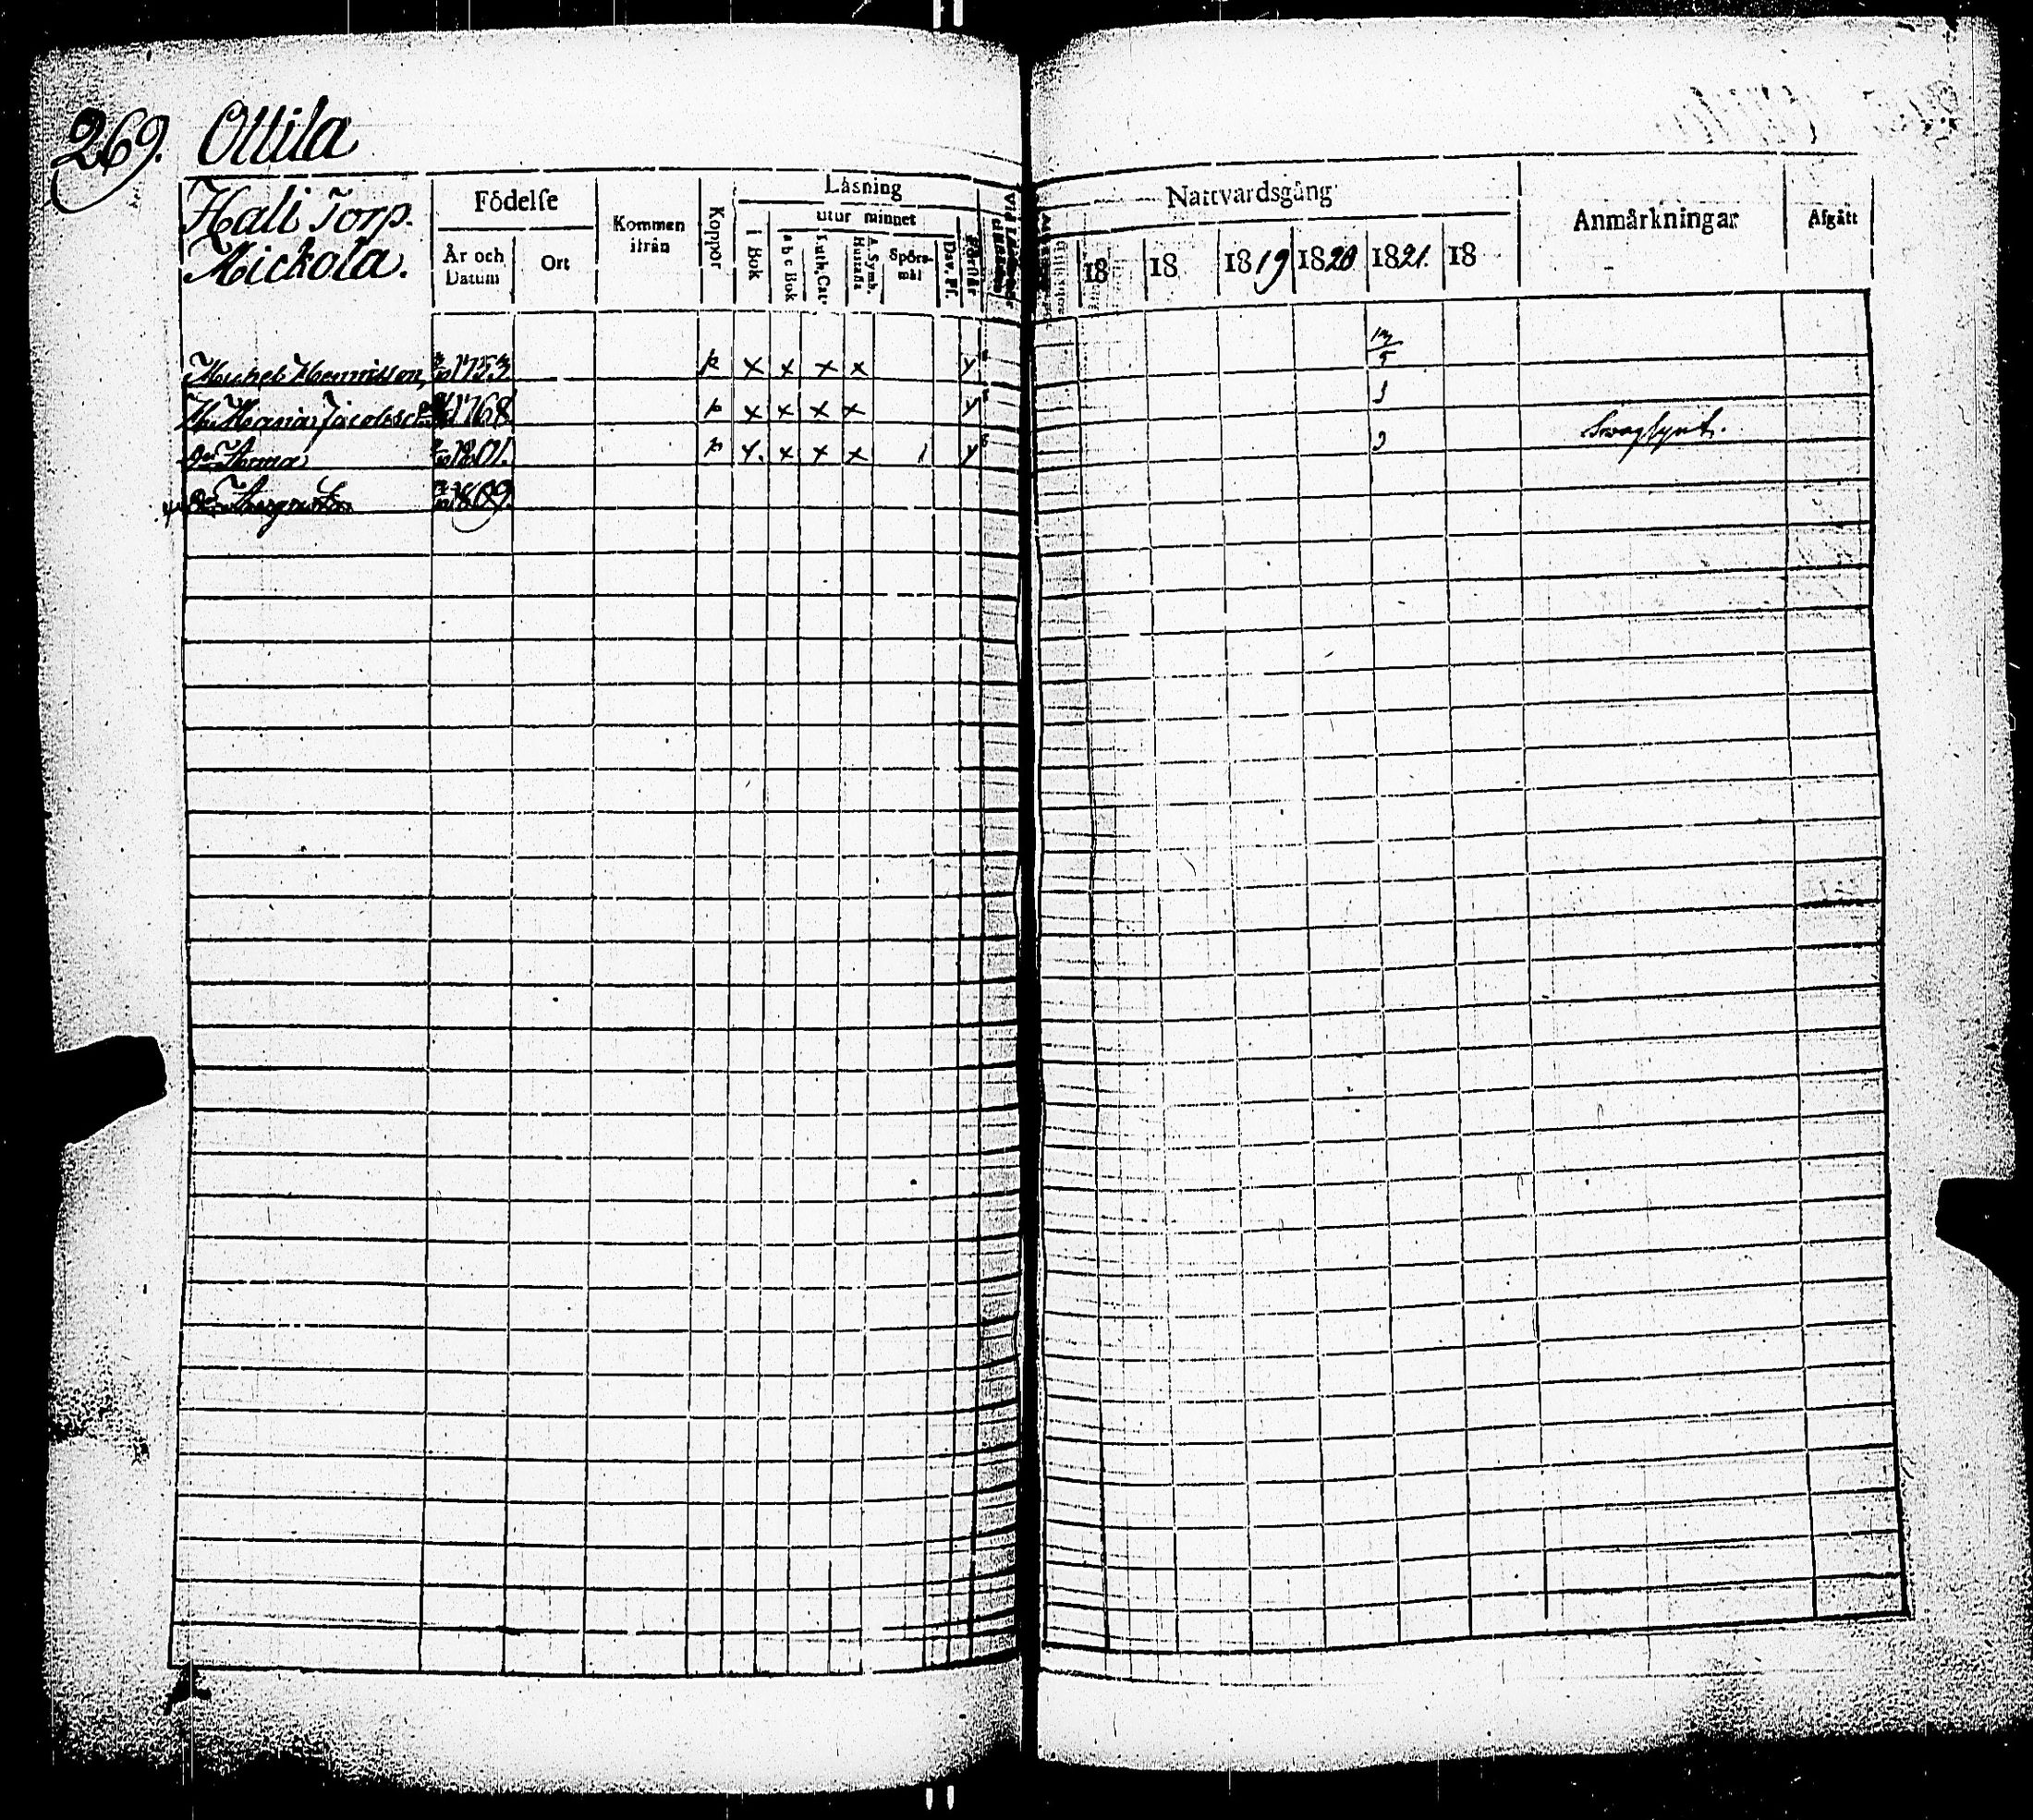 269. Ottila
Hali Torp.
Mickola.
Födelse
År och Datum
Ort
Kommen ifrån
Koppor
Läsning
i Bok
utur minnet
a b c Bok
Luth. Cat.
A. Symb. Hustafla
Spörsmål
Dav. Ps.
Förstår
Nattvardsgång
18 18 1819 1820 1821. 18
Anmärkningar
Afgått
Michel Henricsson, 1753 p x x x x
Hu Maria Jacobsd. 1768 p x x x x
Dr Anna 1801. p x x x Svagsynt.
Dr Margareta 1809.